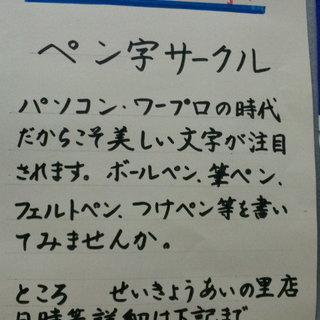 ペン字サークル
パソコン・ワープロの時代
だからこそ美しい文字が注目
されます。ボールペン、筆ペン、
フェルトペン、つけペン等を書い
てみませんか。
ところ　せいきょうあいの里店
日時等詳細は下記まで